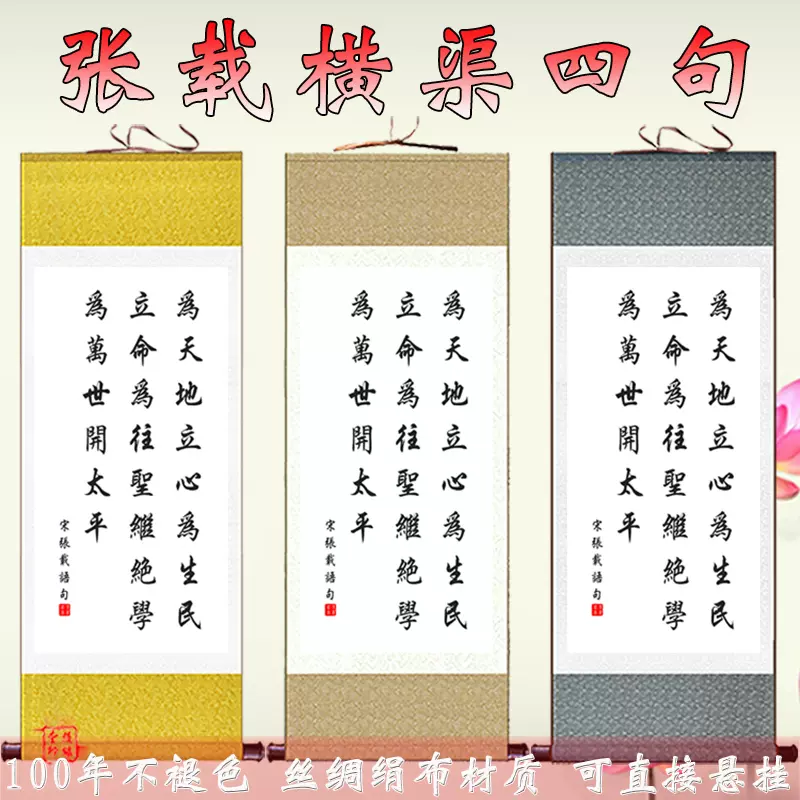 张载横渠四句
為天地立心為生民
立命為往聖繼絶學
為萬世開太平
宋張載語句
為天地立心為生民
立命為往聖繼絶學
為萬世開太平
宋張載語句
為天地立心為生民
立命為往聖繼絶學
為萬世開太平
宋張載語句
100年不褪色 丝绸绢布材质 可直接悬挂